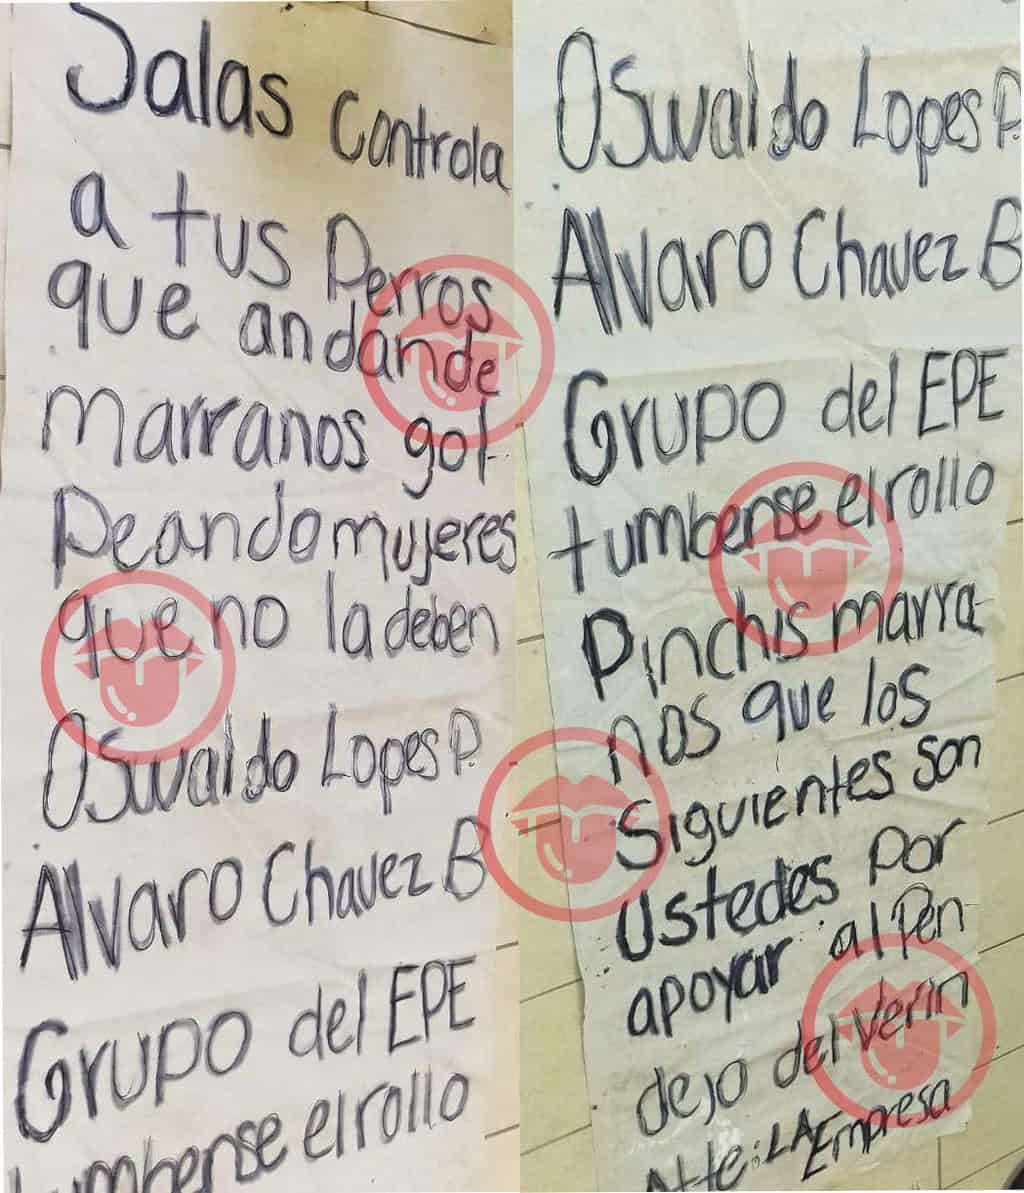 Salas Controla
a tus Perros
que andan de
marranos gol-
Peando mujeres
que no la deben
Oswaldo Lopes P.
Alvaro Chavez B
Grupo del EPE
tumbense el rollo
Oswaldo Lopes P.
Alvaro Chavez B
Grupo del EPE
tumbense el rollo
Pinchis marra-
nos que los
Siguientes son
Ustedes por
apoyar al Pen-
dejo del Verin
Atte: LA Empresa